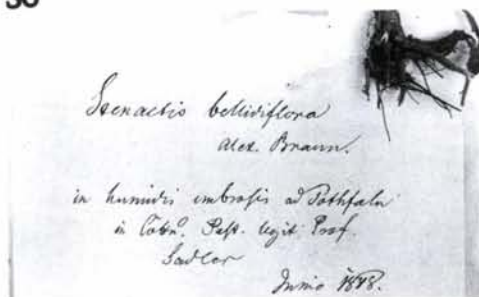 Stenactis bellidiflora
Alex. Braun.
in humidis umbrosis ad Pothfalu
in Cottu. Pest. legit Prof.
Sadler
Junio